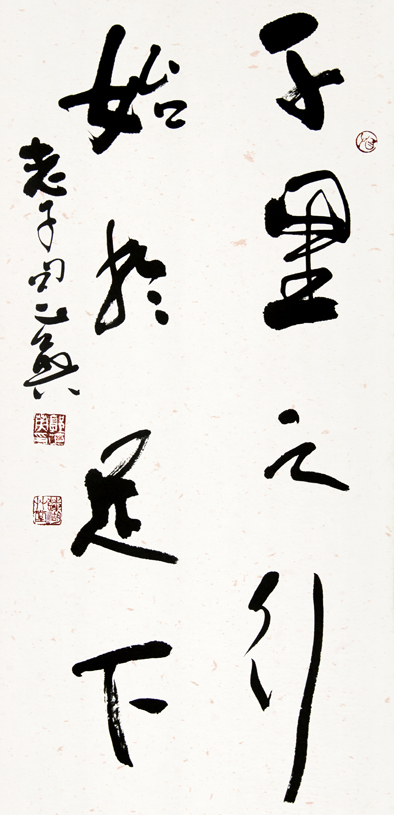 千里之行
始於足下
老子句